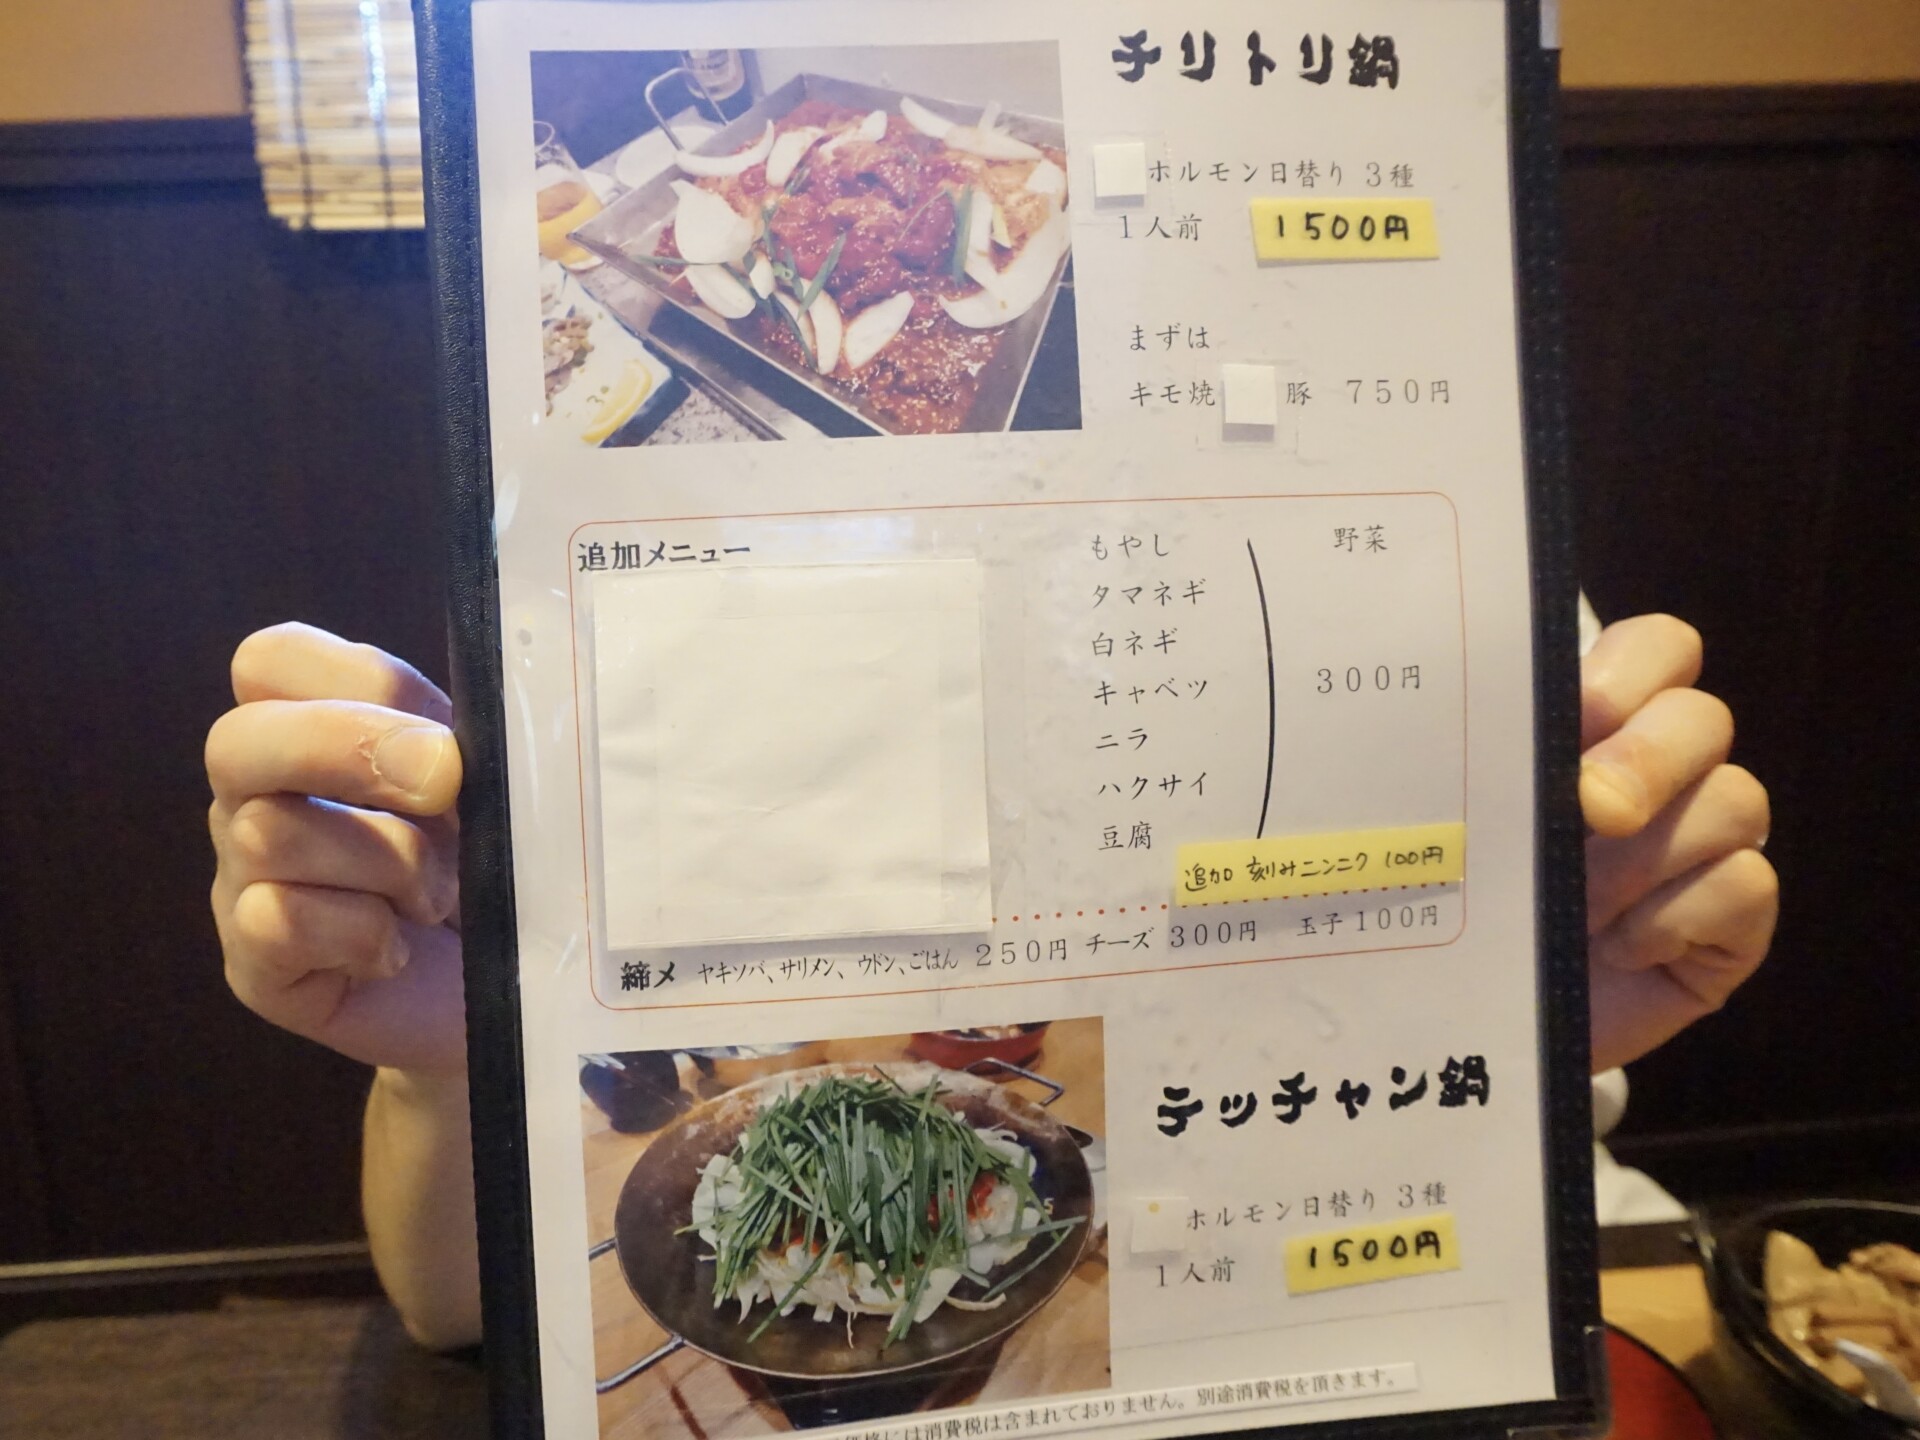 チリトリ鍋
ホルモン日替り 3種
1人前 1500円
まずは
キモ焼 豚 750円
追加メニュー
もやし
タマネギ
白ネギ
キャベツ
ニラ
ハクサイ
豆腐
野菜
300円
追加 刻みニンニク 100円
締メ ヤキソバ、サリメン、ウドン、ごはん 250円 チーズ 300円 玉子 100円
テッチャン鍋
ホルモン日替り 3種
1人前 1500円
価格には消費税は含まれておりません。別途消費税を頂きます。